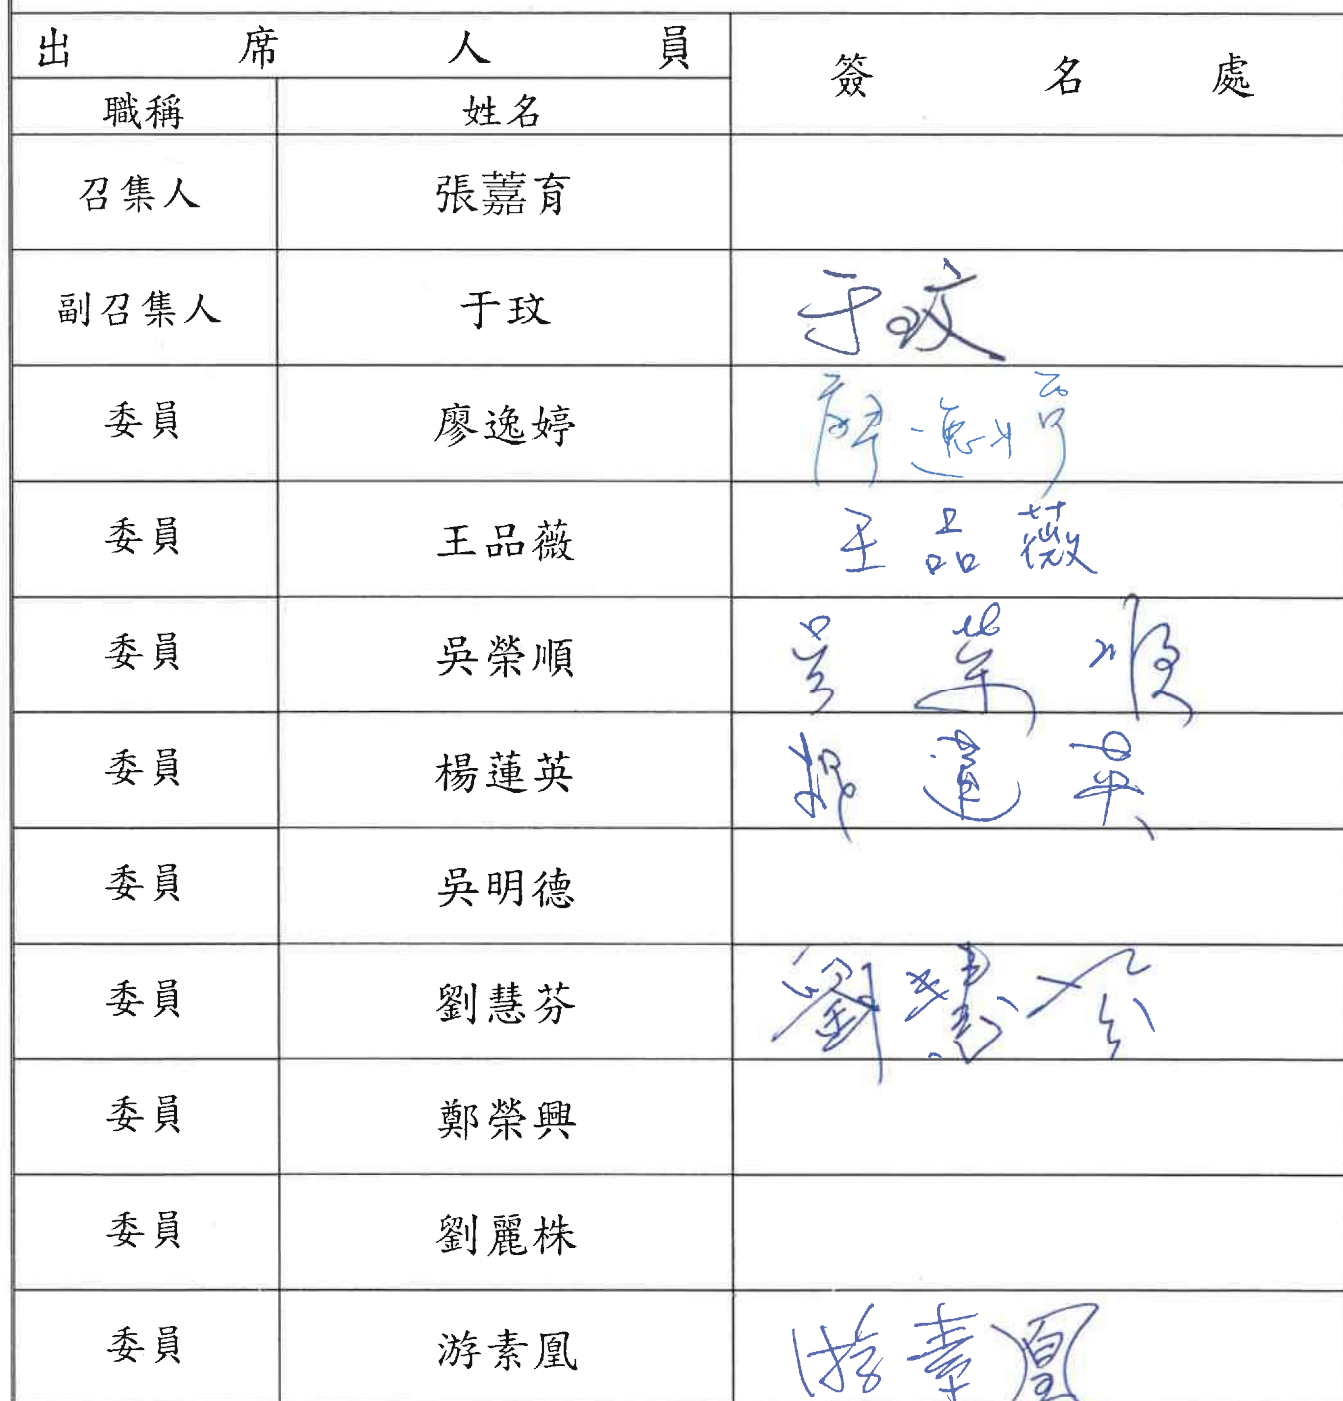 出席人員 簽名處
職稱 姓名
召集人 張嘉育
副召集人 于玟 于玟
委員 廖逸婷 廖逸婷
委員 王品薇 王品薇
委員 吳榮順 吳榮順
委員 楊蓮英 楊蓮英
委員 吳明德
委員 劉慧芬 劉慧芬
委員 鄭榮興
委員 劉麗株
委員 游素凰 游素凰